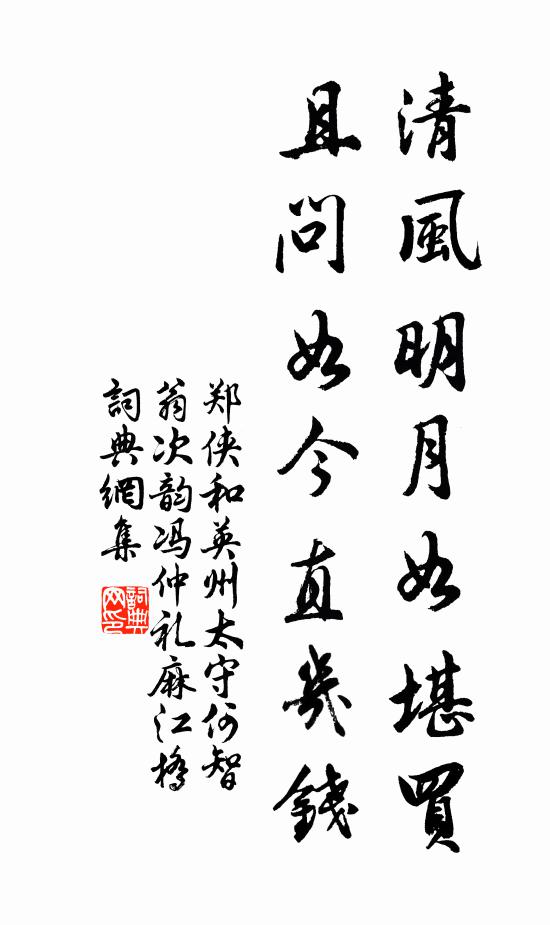 清風明月如堪買
且問如今直幾錢
郑侠和英州太守何智
翁次韵冯仲礼麻江橋
詞典網集
詞典
网印